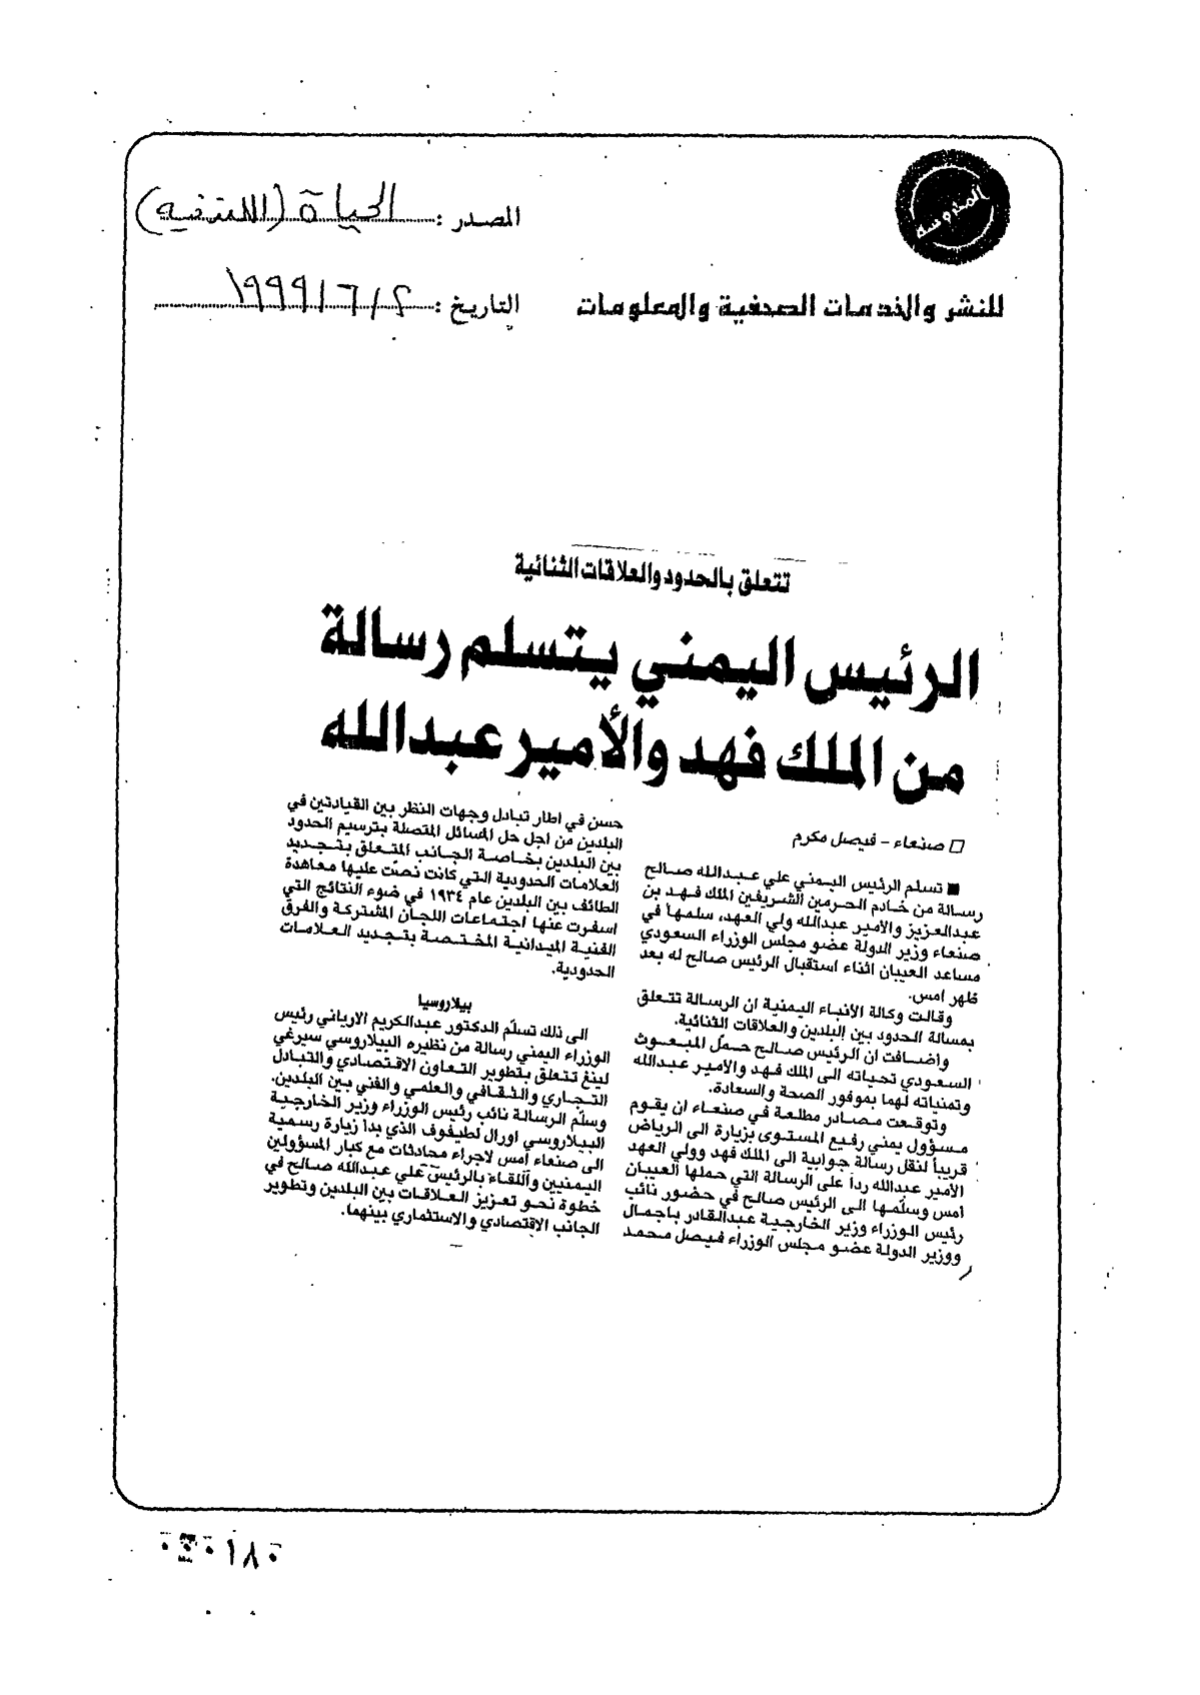 المحروسة
للنشر والخدمات الصحفية والمعلومات
المصدر : الحياة (اللندنية)
التاريخ : ٢ / ٦ / ١٩٩٩
تتعلق بالحدود والعلاقات الثنائية
الرئيس اليمني يتسلم رسالة
من الملك فهد والأمير عبدالله
□ صنعاء - فيصل مكرم
■ تسلم الرئيس اليمني علي عبدالله صالح
رسالة من خادم الحرمين الشريفين الملك فهد بن
عبدالعزيز والامير عبدالله ولي العهد، سلمها في
صنعاء وزير الدولة عضو مجلس الوزراء السعودي
مساعد العيبان اثناء استقبال الرئيس صالح له بعد
ظهر امس.
وقالت وكالة الأنباء اليمنية ان الرسالة تتعلق
بمسالة الحدود بين البلدين والعلاقات الثنائية.
واضافت ان الرئيس صالح حمل المبعوث
السعودي تحياته الى الملك فهد والامير عبدالله
وتمنياته لهما بموفور الصحة والسعادة.
وتوقعت مصادر مطلعة في صنعاء ان يقوم
مسؤول يمني رفيع المستوى بزيارة الى الرياض
قريباً لنقل رسالة جوابية الى الملك فهد وولي العهد
الأمير عبدالله رداً على الرسالة التي حملها العيبان
امس وسلّمها الى الرئيس صالح في حضور نائب
رئيس الوزراء وزير الخارجية عبدالقادر باجمال
ووزير الدولة عضو مجلس الوزراء فيصل محمد
حسن في اطار تبادل وجهات النظر بين القيادتين في
البلدين من اجل حل المسائل المتصلة بترسيم الحدود
بين البلدين بخاصة الجانب المتعلق بتجديد
العلامات الحدودية التي كانت نصت عليها معاهدة
الطائف بين البلدين عام ١٩٣٤ في ضوء النتائج التي
اسفرت عنها اجتماعات اللجان المشتركة والفرق
الفنية الميدانية المختصة بتجديد العلامات
الحدودية.
بيلاروسيا
الى ذلك تسلّم الدكتور عبدالكريم الارياني رئيس
الوزراء اليمني رسالة من نظيره البيلاروسي سيرغي
لينغ تتعلق بتطوير التعاون الاقتصادي والتبادل
التجاري والثقافي والعلمي والفني بين البلدين.
وسلّم الرسالة نائب رئيس الوزراء وزير الخارجية
البيلاروسي اورال لطيفوف الذي بدأ زيارة رسمية
الى صنعاء أمس لاجراء محادثات مع كبار المسؤولين
اليمنيين واللقاء بالرئيس علي عبدالله صالح في
خطوة نحو تعزيز العلاقات بين البلدين وتطوير
الجانب الاقتصادي والاستثماري بينهما.